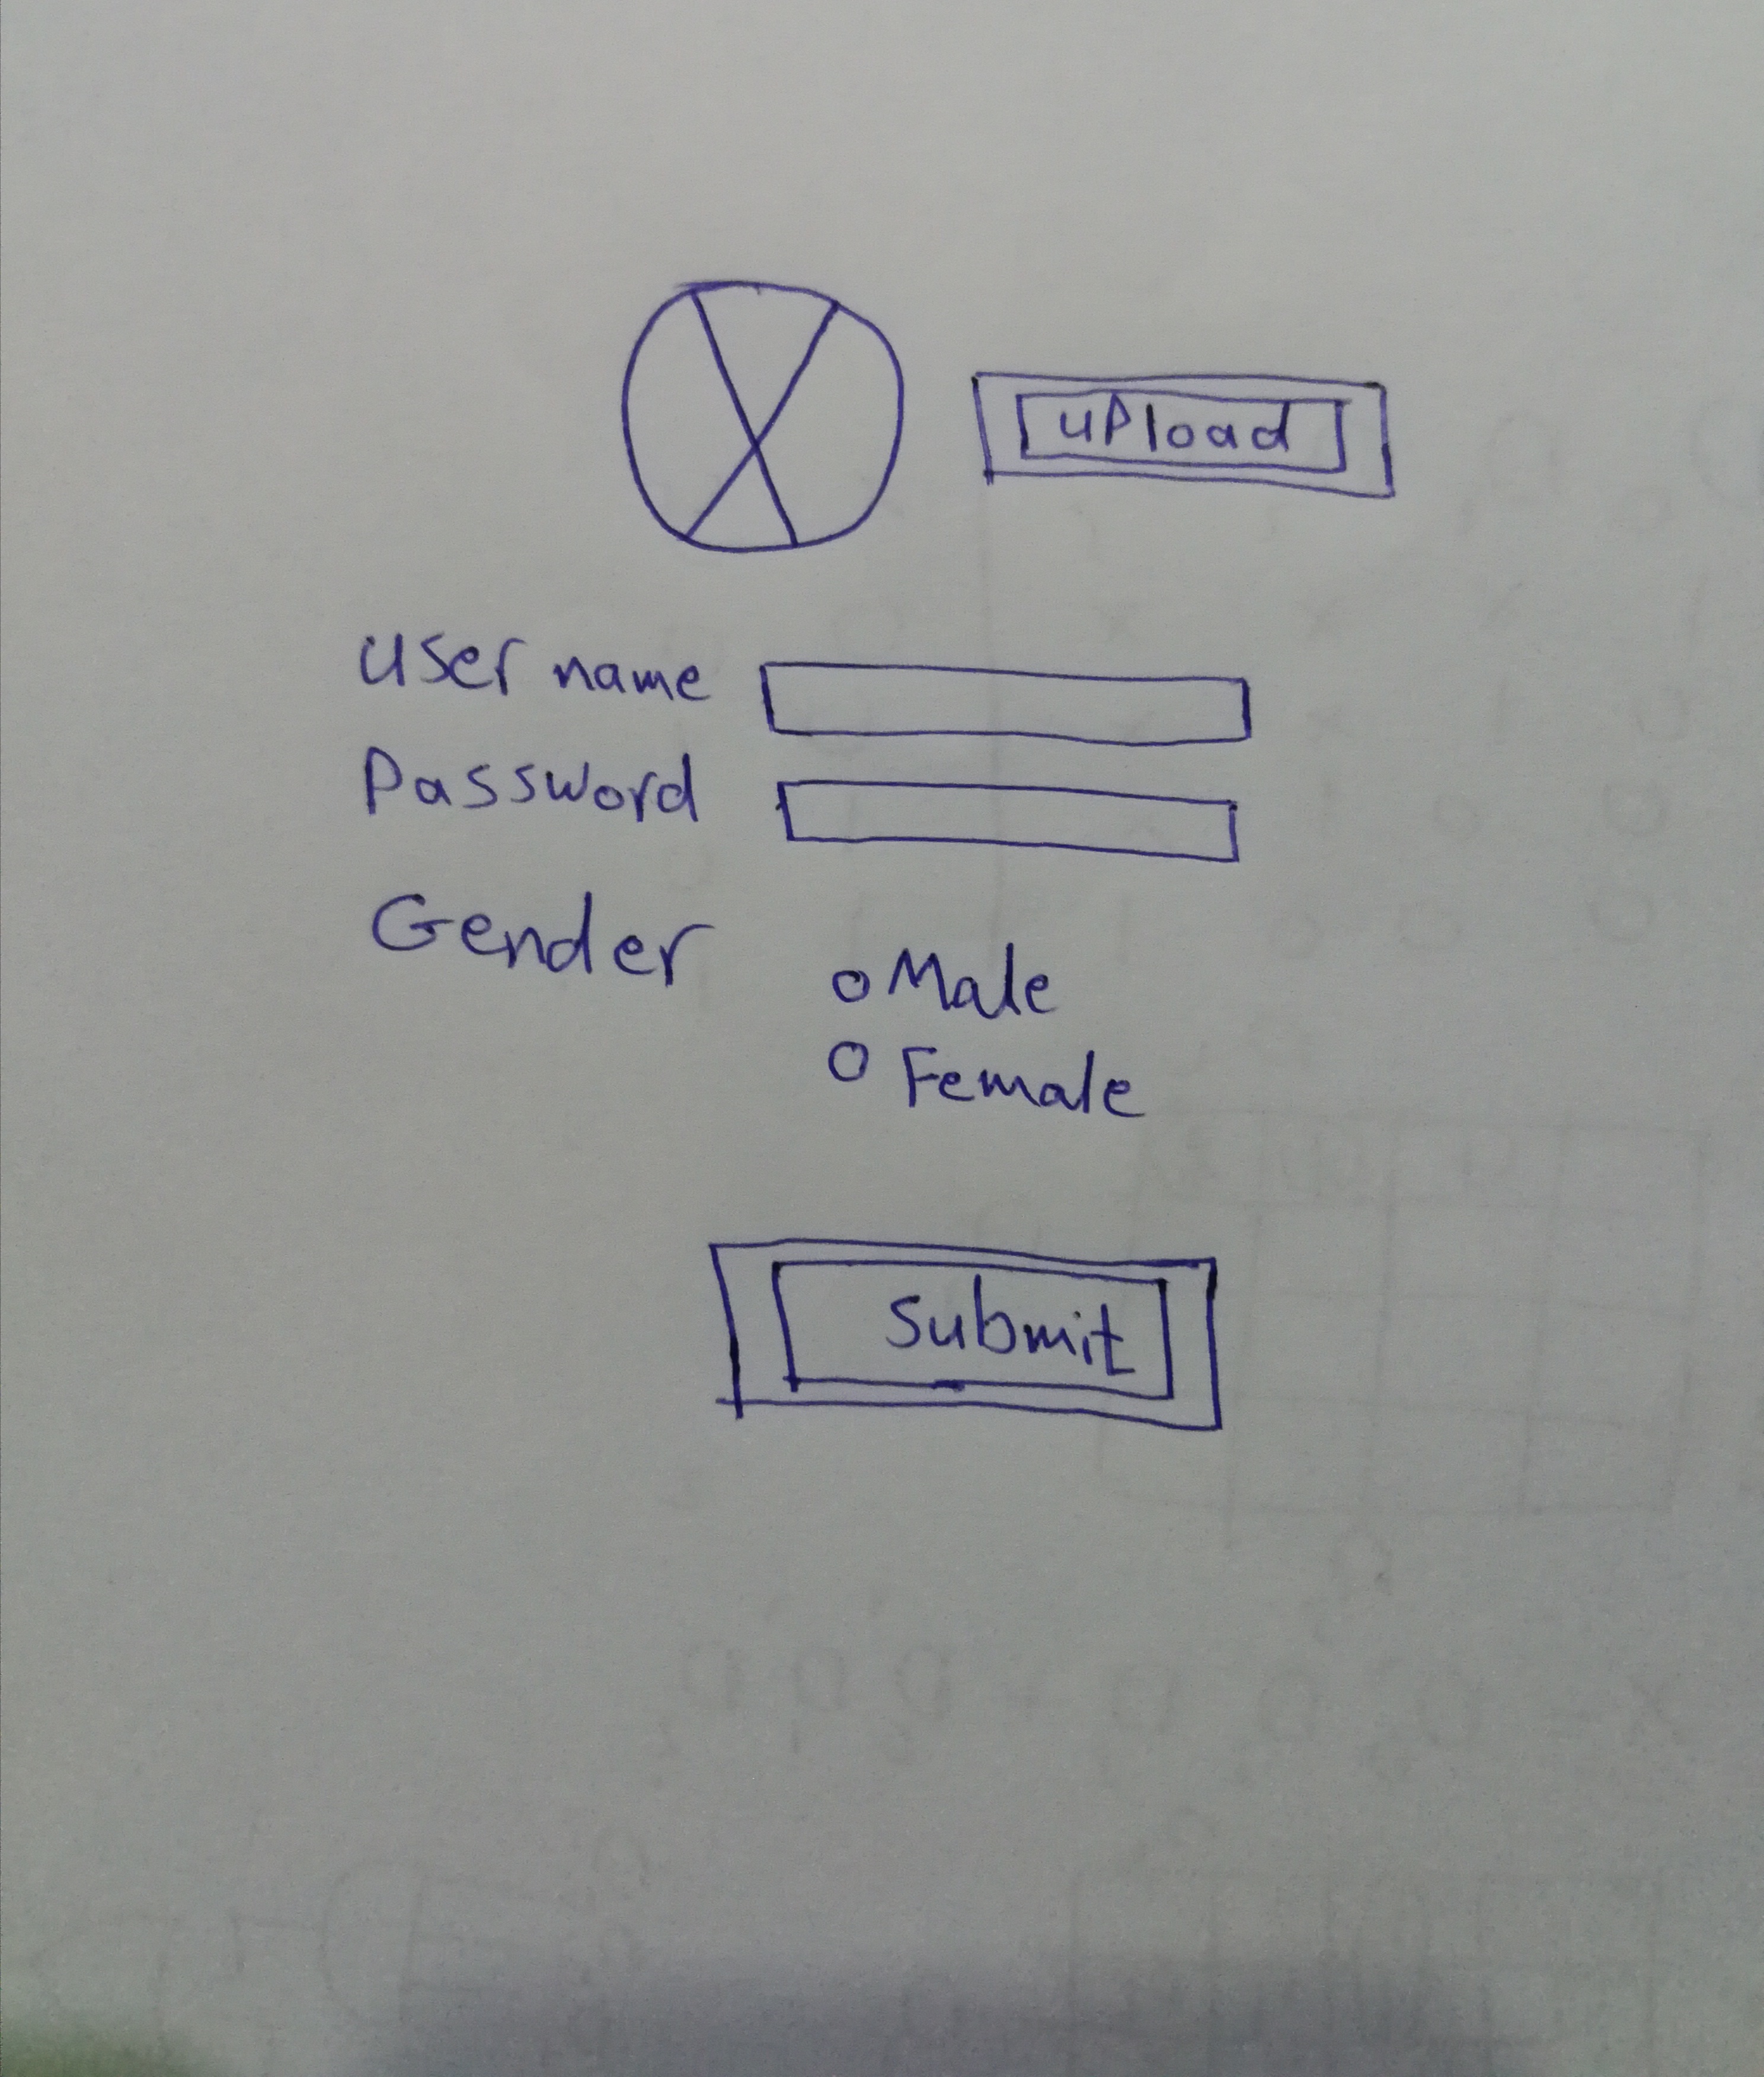 upload
User name
Password
Gender
Male
Female
Submit